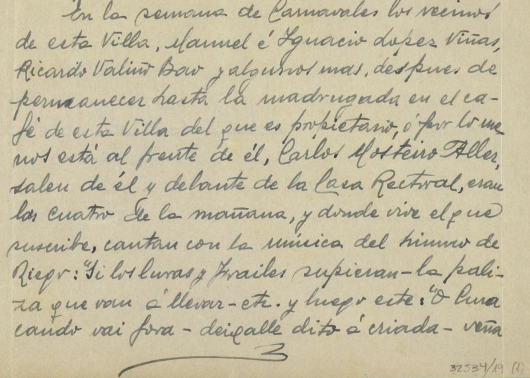 En la semana de Carnavales los vecinos
de esta Villa, Manuel é Ignacio Lopez Viñas,
Ricardo Valiño Bao y algunos mas, déspues de
permanecer hasta la madrugada en el ca-
fé de esta Villa del que es propietario, ó por lo me-
nos está al frente de él, Carlos Mosteiro Aller,
salen de él y delante de la Casa Rectoral, eran
las cuatro de la mañana, y donde vive el que
suscribe, cantan con la música del himno de
Riego: "Si los curas y frailes supieran - la pali-
za que van á llevar - etc. y luego este: "O Cura
cando vai fora - deixalle dito á criada - veña
32534/19 (1)